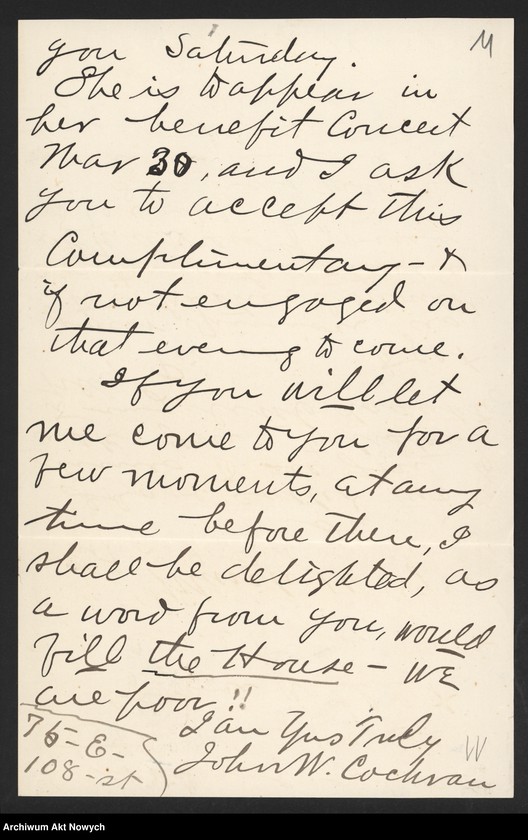 M
you Saturday.
She is to appear in
her benefit Concert
Mar 30, and I ask
you to accept this
Complimentary - &
if not engaged on
that evening to come.
If you will let
me come to you for a
few moments, at any
time before then, I
shall be delighted, as
a word from you, would
fill the House - WE
are poor!!
I am Yrs Truly
John W. Cochran
75-E-
108-st
W
Archiwum Akt Nowych